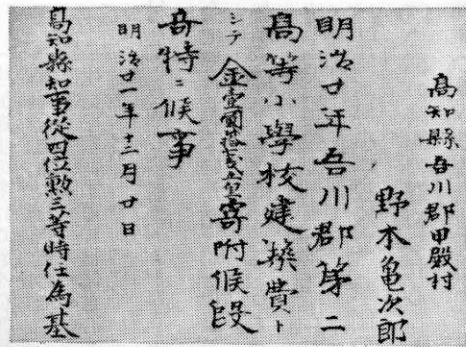 高知縣吾川郡甲殿村
野本亀次郎
明治廿年吾川郡第二
高等小學校建換費ト
シテ金壹圓寄附候段
奇特ニ候事
明治廿一年十二月廿日
高知縣知事從四位勲三等時任為基